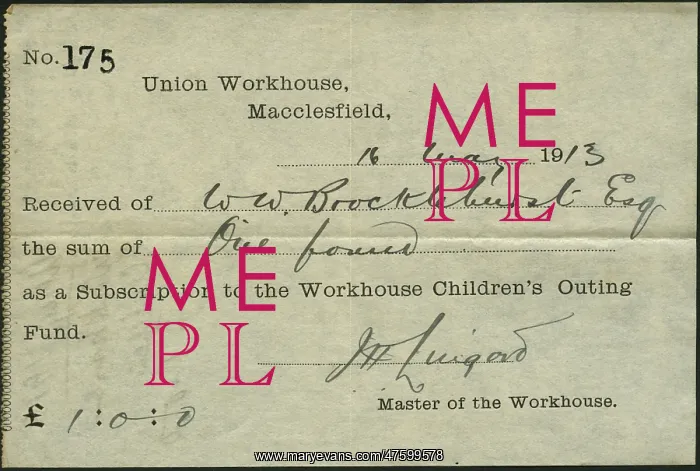 No. 175
Union Workhouse,
Macclesfield,
16 May 1913
Received of W. W. Brocklehurst Esq
the sum of One pound
as a Subscription to the Workhouse Children's Outing
Fund.
J H Lingard
Master of the Workhouse.
£ 1:0:0
ME
PL
ME
PL
www.maryevans.com/47599578